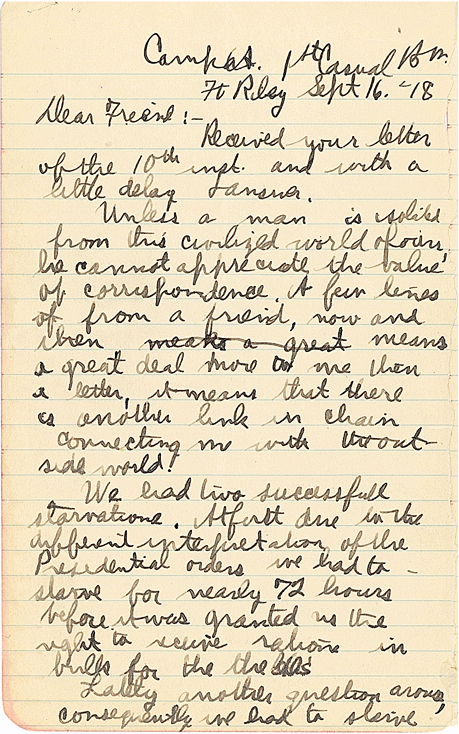 Camp 1st Casual Bn.
Ft Riley Sept 16. -18
Dear Friend :-
Received your letter
of the 10th inst. and with a
little delay I answer.
Unless a man is isolited
from this civilized world of ours,
he cannot appreciate the value
of correspondence. A few lines
of from a friend, now and
then means a great means
a great deal more to me then
a letter, it means that there
is another link in chain
connecting me with the out-
side world!
We had two successfull
starvations. At first due to the
different interpretation of the
Presedential orders we had to -
starve for nearly 72 hours
before it was granted us the
right to receive rations in
bulk for the the
Lately another question arous,
consequently we had to starve